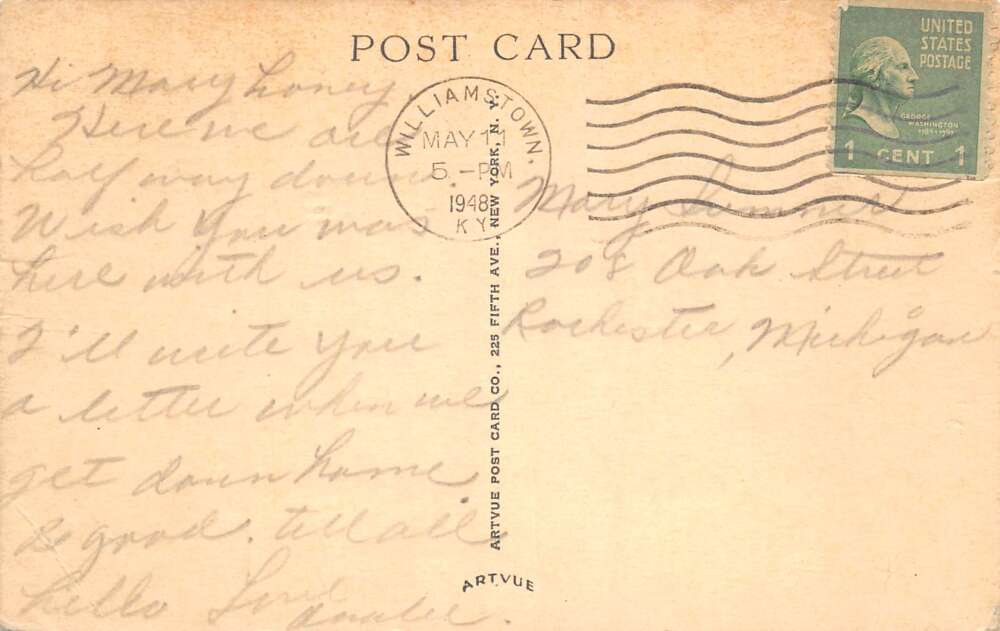 POST CARD
Hi Mary Loney,
Here we are
half way down.
Wish you was
here with us.
I'll write you
a letter when we
get down home
& good. tell all
hello Love
WILLIAMSTOWN,
MAY 11
5 - PM
1948
KY.
UNITED
STATES
POSTAGE
GEORGE
WASHINGTON
1 CENT 1
Mary Sumner
208 Oak Street
Rochester, Michigan
ARTVUE POST CARD CO., 225 FIFTH AVE., NEW YORK, N. Y.
ARTVUE